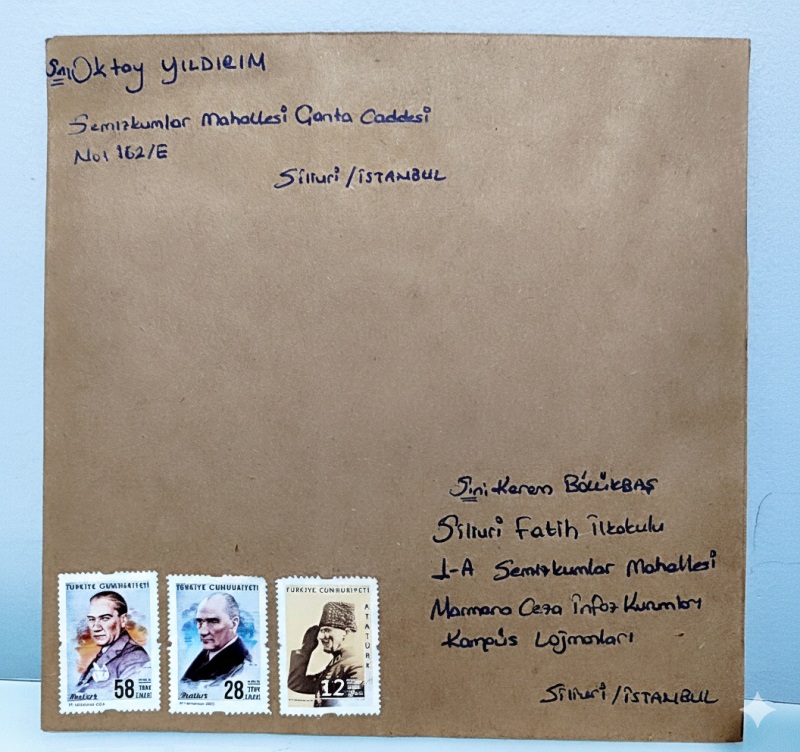 Sn: Oktay YILDIRIM
Semizkumlar Mahallesi Ganta Caddesi
No: 162/E
Silivri / İSTANBUL
Sn: Kerem BÖLÜKBAŞ
Silivri Fatih İlkokulu
1-A Semizkumlar Mahallesi
Marmara Ceza İnfaz Kurumları
Kampüs Lojmanları
Silivri / İSTANBUL
TÜRKİYE CUMHURİYETİ
58
TÜRKİYE CUMHURİYETİ
28
TÜRKİYE CUMHURİYETİ
ATATÜRK
12